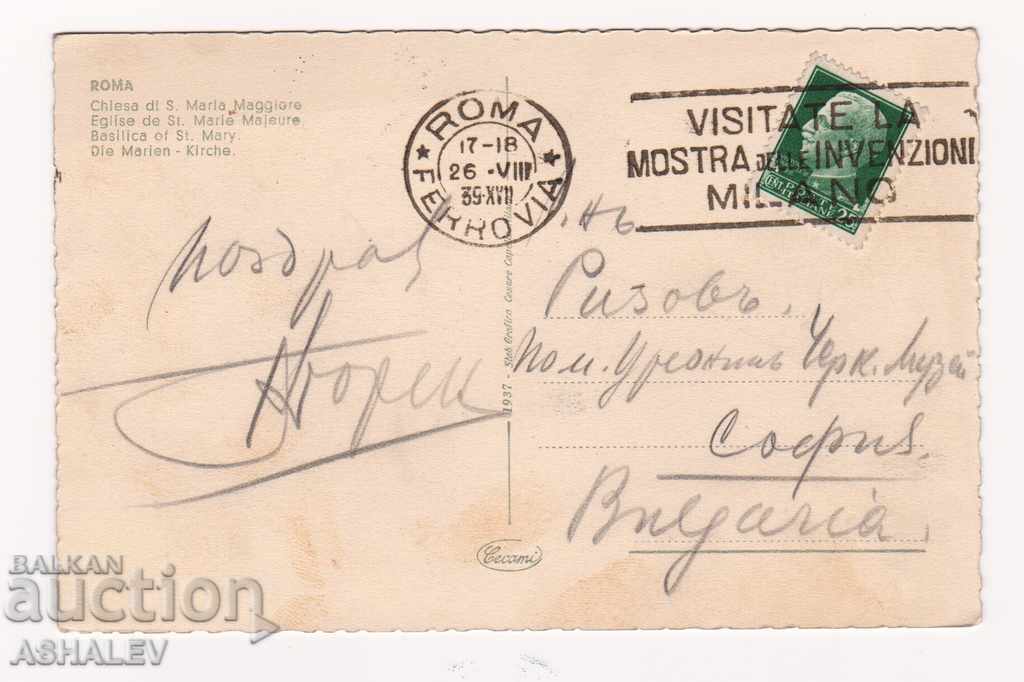 ROMA
Chiesa di S. Maria Maggiore
Eglise de St. Marie Majeure
Basilica of St. Mary.
Die Marien - Kirche.
ROMA
17-18
26 - VIII
39-XVII
FERROVIA
VISITATE LA
MOSTRA DELLE INVENZIONI
MILANO
25
поздрав
1937 - Stab Grafico Cesare
Г-нъ
Ризовъ.
Пом. Уредникъ Църк. Музей
София.
Bulgaria.
Cecami
BALKAN
auction
ASHALEV